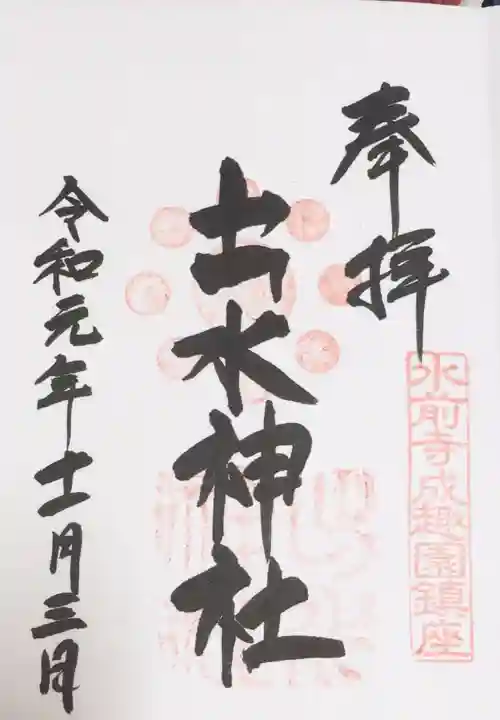 奉拝
水前寺成趣園鎮座
出水神社
令和元年十一月三日